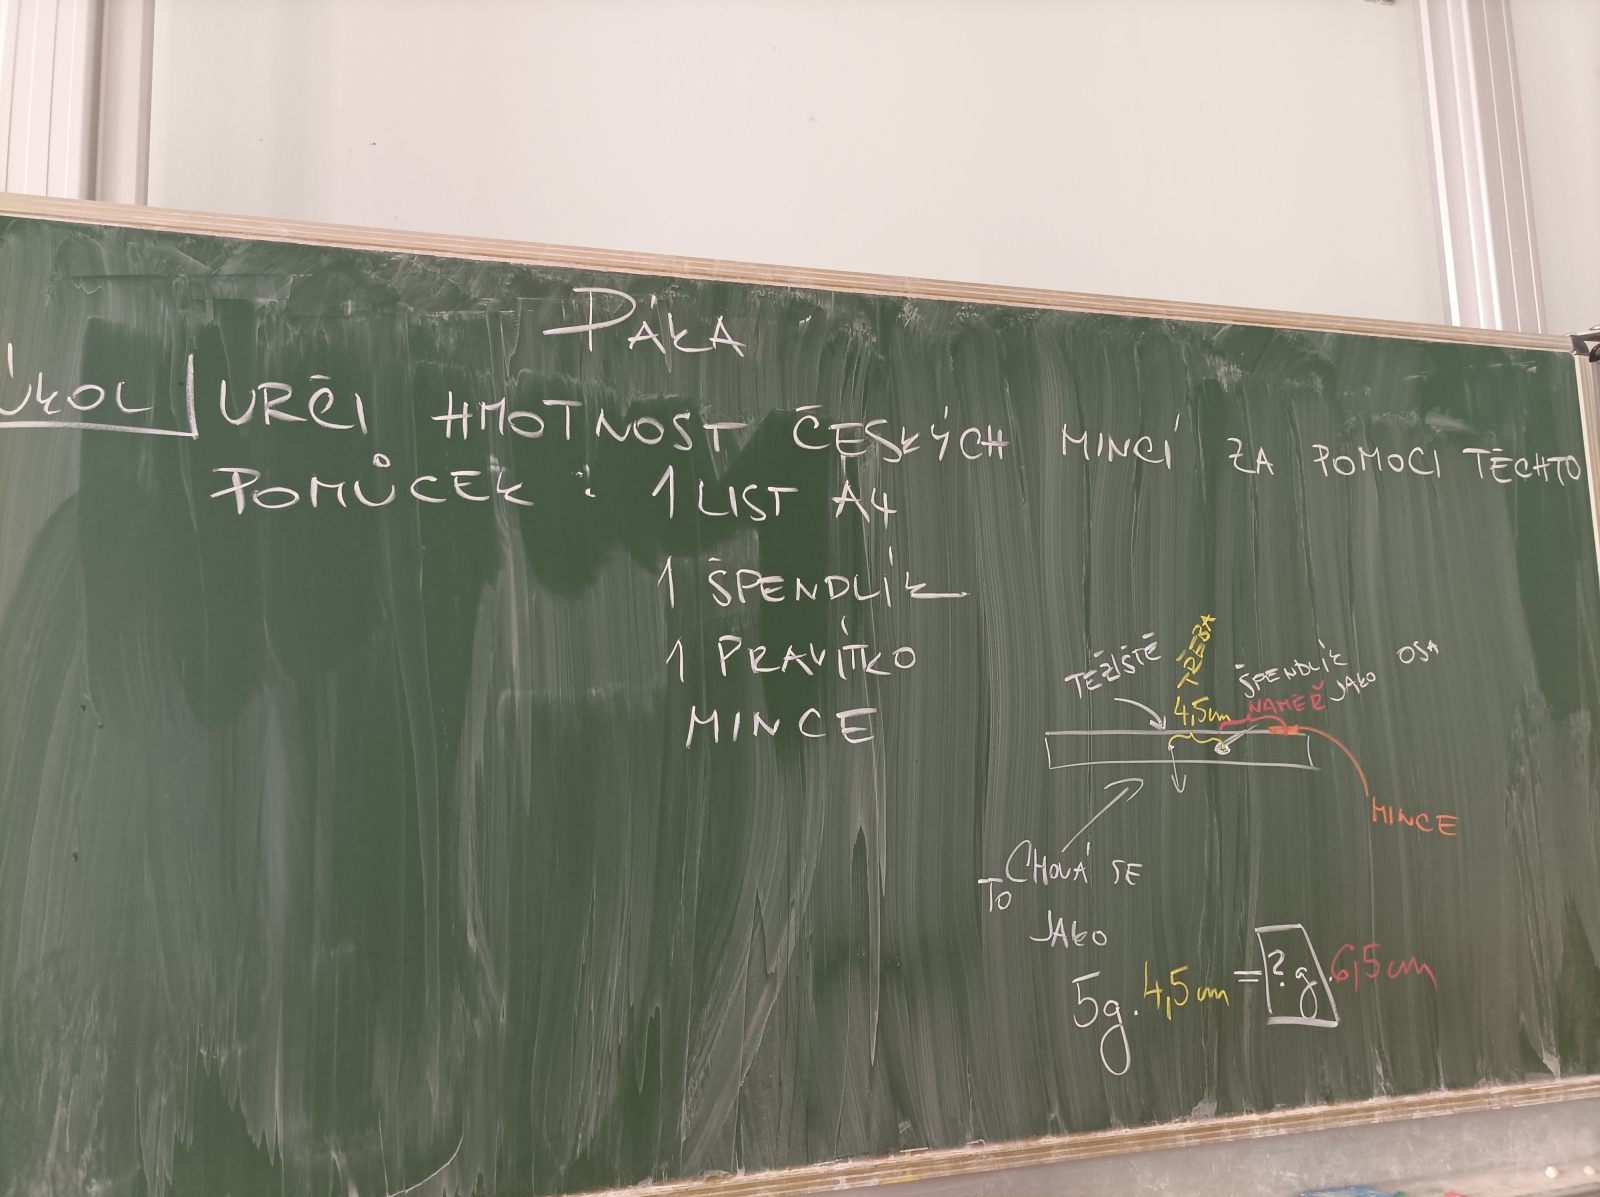 PÁKA
ÚKOL URČI HMOTNOST ČESKÝCH MINCÍ ZA POMOCI TĚCHTO
POMŮCEK : 1 LIST A4
1 ŠPENDLÍK
1 PRAVÍTKO
MINCE
TĚŽIŠTĚ
TŘEBA
4,5cm
ŠPENDLÍK JAKO OSA
NAMĚŘ
MINCE
TO CHOVÁ SE
JAKO
5g . 4,5cm = ? g . 6,5cm